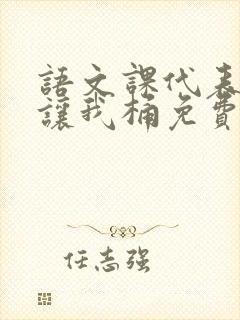 語文課代表
讓我桶免費
任志强